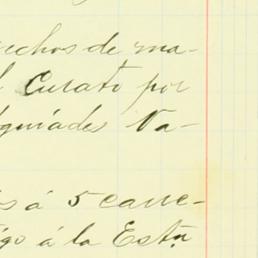 rechos de ma-
l Curato por
lquiades Va-
s á 5 carre-
igo á la Estn